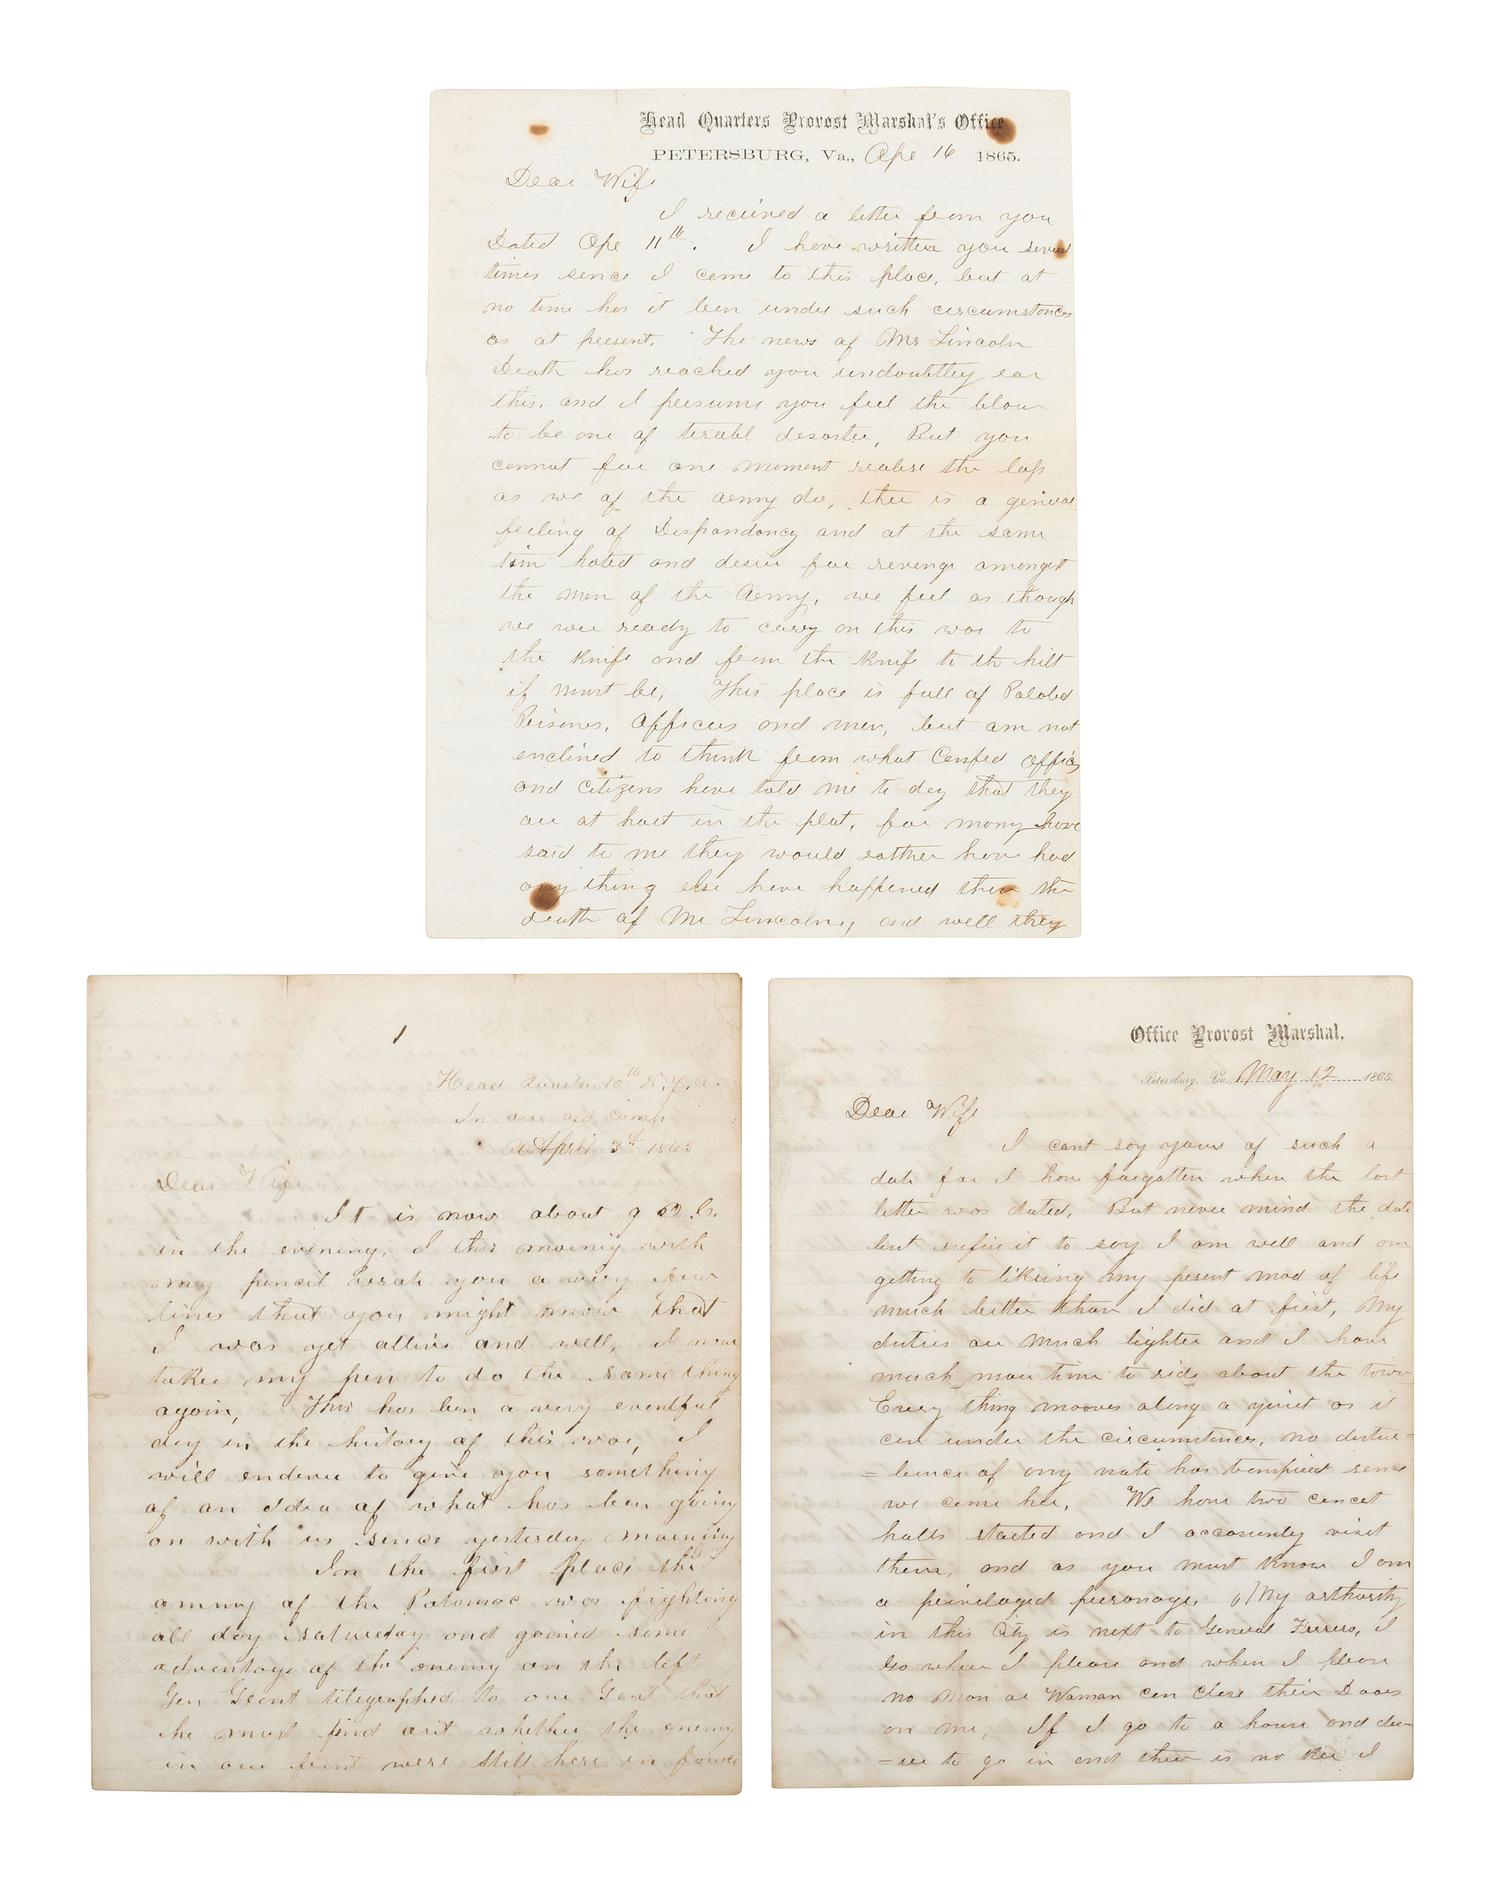 Head Quarters Provost Marshal's Office
PETERSBURG, Va., Apr 16 1865.
Dear Wife
I received a letter from you
Dated Apr 11th. I have written you several
times sence I came to this place, but at
no time has it been under such circumstances
as at present. The news of Mr Lincoln
Death has reached you undoubtley ear
this, and I persume you feel the blow
to be one of terabl desaster, But you
cannot for one moment realise the loss
as we of the army do, ther is a general
feeling of Despondancy and at the same
tim hated and desire for revenge amongst
the men of the Army, we feel as though
we wer ready to carry on this war to
the Knife and from the Knife to th hilt
if must be, This place is full of Paroled
Prisoners, Officers and men, but am not
enclined to think from what Confed Offices
and Citizens have told me to day that they
are at hart in the plot, for many have
said to me they would rather have had
any thing else have happened then the
death of Mr Lincoln, and well they
1
Head Quarters 10th N.Y. A.
In our old camp
April 3rd 1865
Dear Wife
It is now about 9 O.C.
in the evening, I this morning with
my pencil wrote you a very few
lines that you might know that
I was yet allive and well, I now
take my pen to do the same thing
again, This has ben a very eventful
day in the history of this war, I
will endever to give you something
of an Idea of what has ben going
on with us since yesterday morning
In the first place the
ammy of the Potomac was fighting
all day saturday and gained some
advantage of the enemy on the left
Gen Grant telegraphed to our Genl that
he must find out whether the enemy
in our front were still here in force
Office Provost Marshal.
Petersburg, Va. May 12 1865.
Dear Wife
I cant say yours of such a
date for I have forgotten when the last
letter was dated, But never mind the date
but sufise it to say I am well and am
getting to likeing my present mod of life
much better than I did at first, My
duties are much lighter and I have
much more time to ride about the town
Every thing mooves along a quiet as it
can under the circumstances, no distur=
=bence of any note has transpired sence
we came her, We have two concert
halls started and I accasenly visit
them, and as you must know I am
a priveledged personage, My arthority
in this City is next to General Ferrero, I
Go wher I please and when I please
no Man or Woman can Close their Doors
on me, If I go to a house and des-
=ire to go in and ther is no Kee I